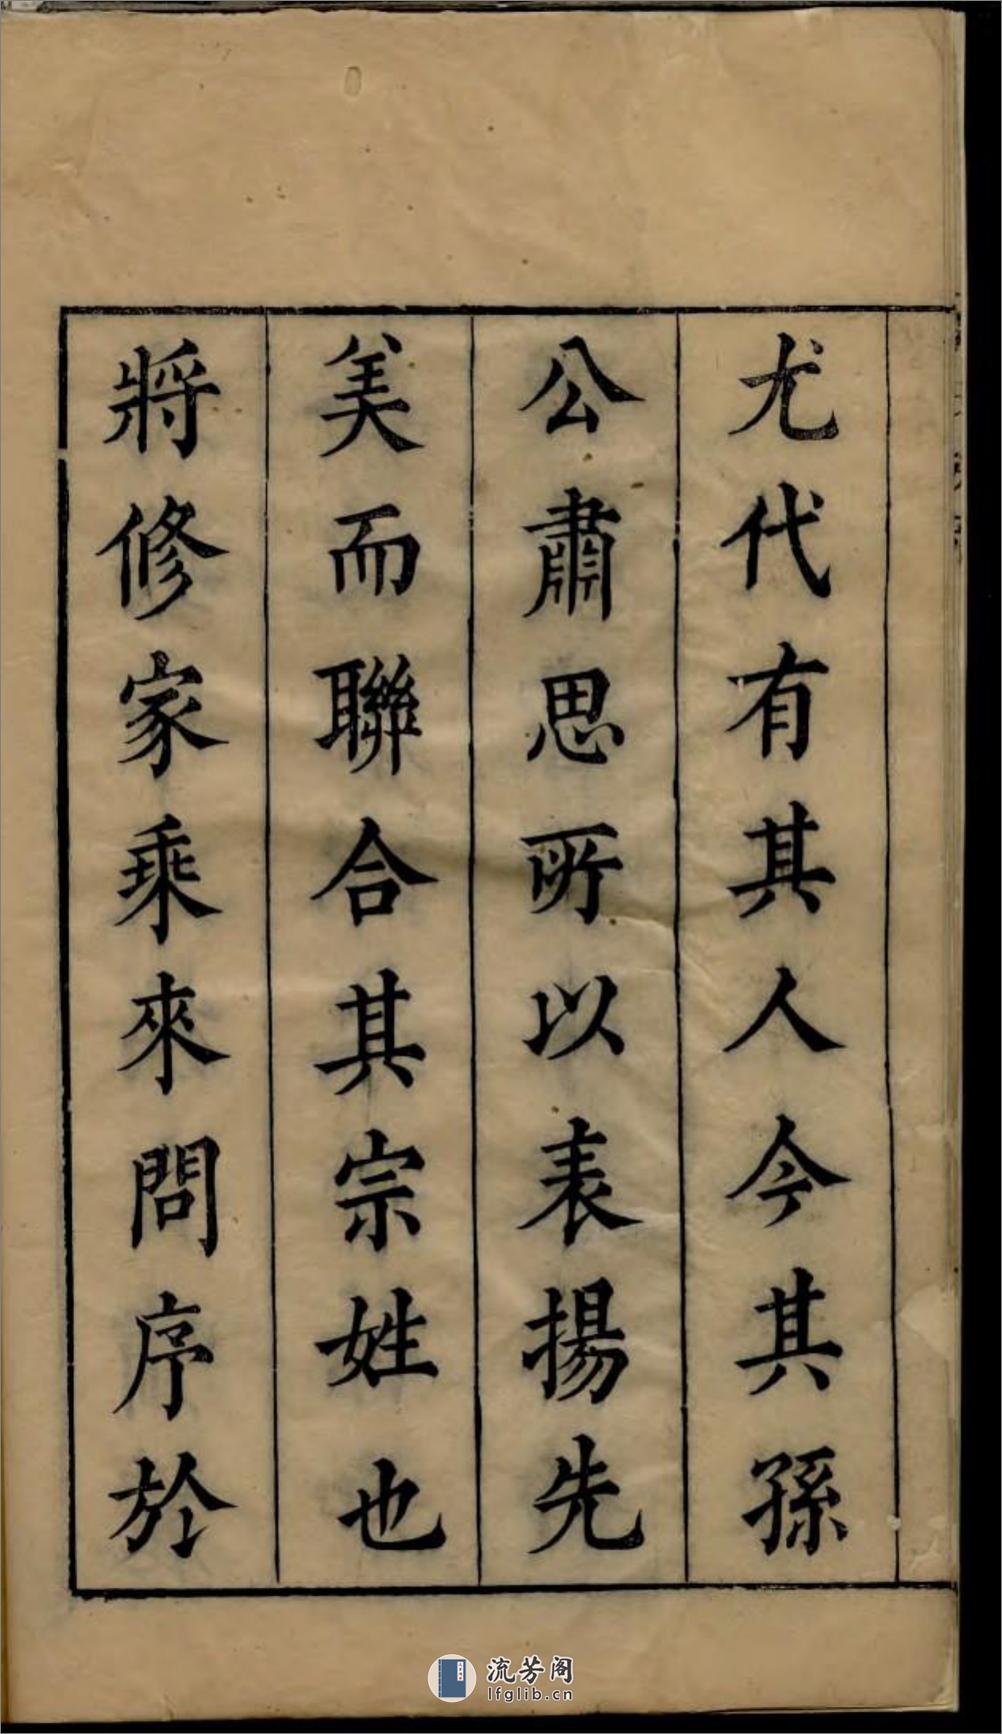 尤代有其人今其孫
公肅思所以表揚先
美而聯合其宗姓也
將修家乘來問序於
流芳阁
lfglib.cn